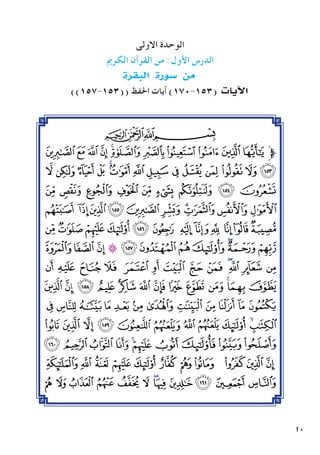 الوحدة الاولى
الدرس الأول: من القرآن الكريم
من سورة البقرة
الآيات (١٥٣-١٧٠) آيات الحفظ ((١٥٣-١٥٧))
بِسْمِ ٱللَّهِ ٱلرَّحْمَٰنِ ٱلرَّحِيمِ
﴿ يَٰٓأَيُّهَا ٱلَّذِينَ ءَامَنُوا۟ ٱسْتَعِينُوا۟ بِٱلصَّبْرِ وَٱلصَّلَوٰةِ ۚ إِنَّ ٱللَّهَ مَعَ ٱلصَّٰبِرِينَ
١٥٣ وَلَا تَقُولُوا۟ لِمَن يُقْتَلُ فِى سَبِيلِ ٱللَّهِ أَمْوَٰتٌۢ ۚ بَلْ أَحْيَآءٌ وَلَٰكِن لَّا
تَشْعُرُونَ ١٥٤ وَلَنَبْلُوَنَّكُم بِشَىْءٍ مِّنَ ٱلْخَوْفِ وَٱلْجُوعِ وَنَقْصٍ مِّنَ
ٱلْأَمْوَٰلِ وَٱلْأَنفُسِ وَٱلثَّمَرَٰتِ ۗ وَبَشِّرِ ٱلصَّٰبِرِينَ ١٥٥ ٱلَّذِينَ إِذَآ أَصَٰبَتْهُم
مُّصِيبَةٌ قَالُوٓا۟ إِنَّا لِلَّهِ وَإِنَّآ إِلَيْهِ رَٰجِعُونَ ١٥٦ أُو۟لَٰٓئِكَ عَلَيْهِمْ صَلَوَٰتٌ مِّن
رَّبِّهِمْ وَرَحْمَةٌ ۖ وَأُو۟لَٰٓئِكَ هُمُ ٱلْمُهْتَدُونَ ١٥٧ ۞ إِنَّ ٱلصَّفَا وَٱلْمَرْوَةَ
مِن شَعَآئِرِ ٱللَّهِ ۖ فَمَنْ حَجَّ ٱلْبَيْتَ أَوِ ٱعْتَمَرَ فَلَا جُنَاحَ عَلَيْهِ أَن
يَطَّوَّفَ بِهِمَا ۚ وَمَن تَطَوَّعَ خَيْرًا فَإِنَّ ٱللَّهَ شَاكِرٌ عَلِيمٌ ١٥٨ إِنَّ ٱلَّذِينَ
يَكْتُمُونَ مَآ أَنزَلْنَا مِنَ ٱلْبَيِّنَٰتِ وَٱلْهُدَىٰ مِنۢ بَعْدِ مَا بَيَّنَّٰهُ لِلنَّاسِ فِى
ٱلْكِتَٰبِ ۙ أُو۟لَٰٓئِكَ يَلْعَنُهُمُ ٱللَّهُ وَيَلْعَنُهُمُ ٱللَّٰعِنُونَ ١٥٩ إِلَّا ٱلَّذِينَ تَابُوا۟
وَأَصْلَحُوا۟ وَبَيَّنُوا۟ فَأُو۟لَٰٓئِكَ أَتُوبُ عَلَيْهِمْ ۚ وَأَنَا ٱلتَّوَّابُ ٱلرَّحِيمُ ١٦٠
إِنَّ ٱلَّذِينَ كَفَرُوا۟ وَمَاتُوا۟ وَهُمْ كُفَّارٌ أُو۟لَٰٓئِكَ عَلَيْهِمْ لَعْنَةُ ٱللَّهِ وَٱلْمَلَٰٓئِكَةِ
وَٱلنَّاسِ أَجْمَعِينَ ١٦١ خَٰلِدِينَ فِيهَا ۖ لَا يُخَفَّفُ عَنْهُمُ ٱلْعَذَابُ وَلَا هُمْ
١٠